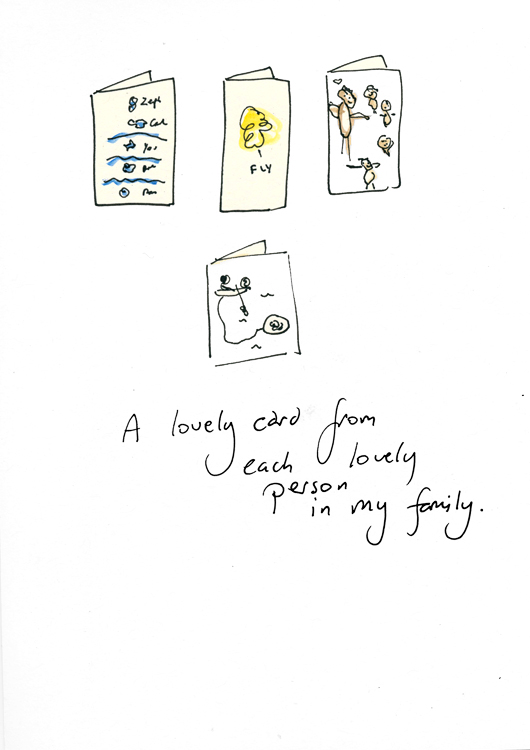 FLY
A lovely card from
each lovely
person
in my family.